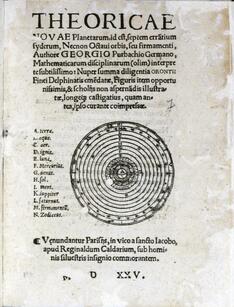 THEORICAE
NOVAE Planetarum. id est, septem errātium
syderum, Necnon Octaui orbis, seu firmamenti,
Authore GEORGIO Purbachio Germano,
Mathematicarum disciplinarum (olim) interpre
te subtilissimo: Nuper summa diligentia ORONTII
Finei Delphinatis emēdatæ, Figuris item opportu
nissimis, & scholiis non aspernādis illustra-
tæ, longeq; castigatius, quam an-
tea, ipso curante coimpressæ.
A. terra.
B. aqua.
C. aer.
D. ignis.
E. luna.
F. Mercurius.
G. uenus.
H. sol.
I. mars.
K. iuppiter
L. saturnus.
M. firmamentū.
N. Zodiacus.
Venundantur Parisiis, in vico a sancto Iacobo,
apud Reginaldum Calderium, sub homi
nis siluestris insignio commorantem.
D XXV.